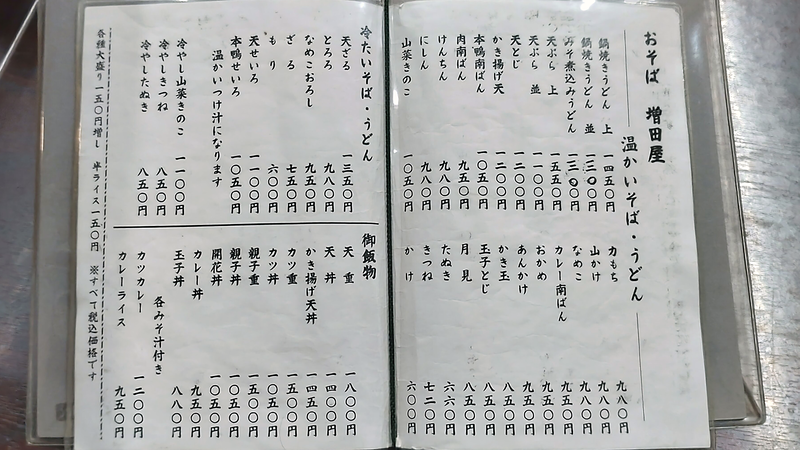 おそば 増田屋
温かいそば・うどん
鍋焼きうどん 上 一四五〇円
鍋焼きうどん 並 一三〇〇円
みそ煮込みうどん 一三〇〇円
天ぷら 上 一五五〇円
天ぷら 並 一一〇〇円
天とじ 一二〇〇円
かき揚げ天 一二〇〇円
本鴨南ばん 一〇五〇円
肉南ばん 九五〇円
けんちん 九八〇円
にしん 九八〇円
山菜きのこ 一〇五〇円
力もち 九八〇円
山かけ 九八〇円
なめこ 九八〇円
カレー南ばん 九五〇円
おかめ 九五〇円
あんかけ 九五〇円
かき玉 八五〇円
玉子とじ 八五〇円
月見 八五〇円
たぬき 六六〇円
きつね 七二〇円
かけ 六〇〇円
冷たいそば・うどん
天ざる 一三五〇円
とろろ 九八〇円
なめこおろし 九五〇円
ざる 七五〇円
もり 六〇〇円
天せいろ 一一〇〇円
本鴨せいろ 一〇五〇円
温かいつけ汁になります
冷やし山菜きのこ 一一〇〇円
冷やしきつね 八五〇円
冷やしたぬき 八五〇円
御飯物
天重 一八〇〇円
天丼 一四〇〇円
かき揚げ天丼 一四五〇円
カツ重 一五〇〇円
カツ丼 一〇五〇円
親子重 一五〇〇円
親子丼 一〇五〇円
開花丼 一〇五〇円
カレー丼 九五〇円
玉子丼 八八〇円
各みそ汁付き
カツカレー 一二〇〇円
カレーライス 九五〇円
各種大盛り一五〇円増し 半ライス一五〇円 ※すべて税込価格です